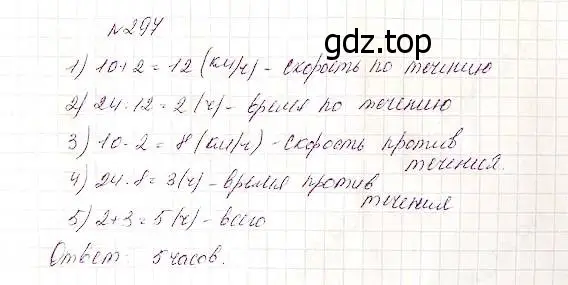 №297
gdz.top
1) 10+2=12 (км/ч) - скорость по течению
2) 24:12=2 (ч) - время по течению
3) 10-2=8 (км/ч) - скорость против
течения.
4) 24:8=3 (ч) - время против
течения
5) 2+3=5 (ч) - всего
Ответ: 5 часов.